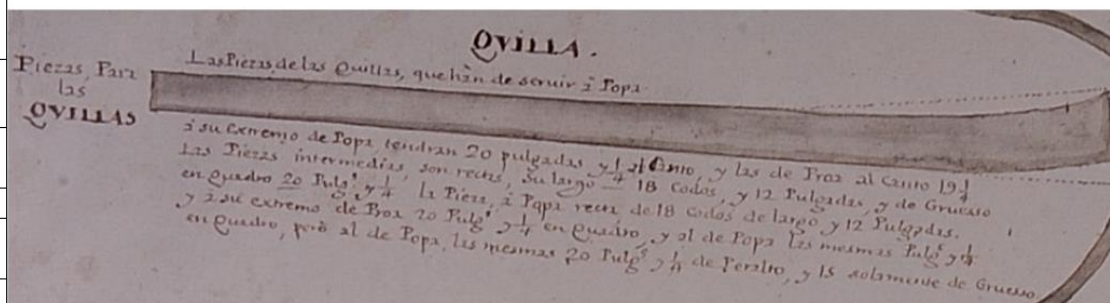 QVILLA.
Piezas, Para
las
QVILLAS
Las Piezas, de las Quillas, que hàn de seruir à Popa
à su extremo de Popa tendran 20 pulgadas y 1/4 al Canto, y las de Proa al Canto 19 1/4
Las Piezas intermedias, son rectas, su largo 18 Codos, y 12 Pulgadas, y de Gruesso
en quadro 20 Pulgs. y 1/4 la Pieza, à Popa recta de 18 codos de largo y 12 Pulgadas.
y à su extremo de Proa 20 Pulgs. y 1/4 en quadro, y al de Popa las mesmas Pulgs. y 1/4
en quadro, però al de Popa, las mesmas 20 Pulgs. y 1/4 de Peralto, y 15 solamente de Gruesso